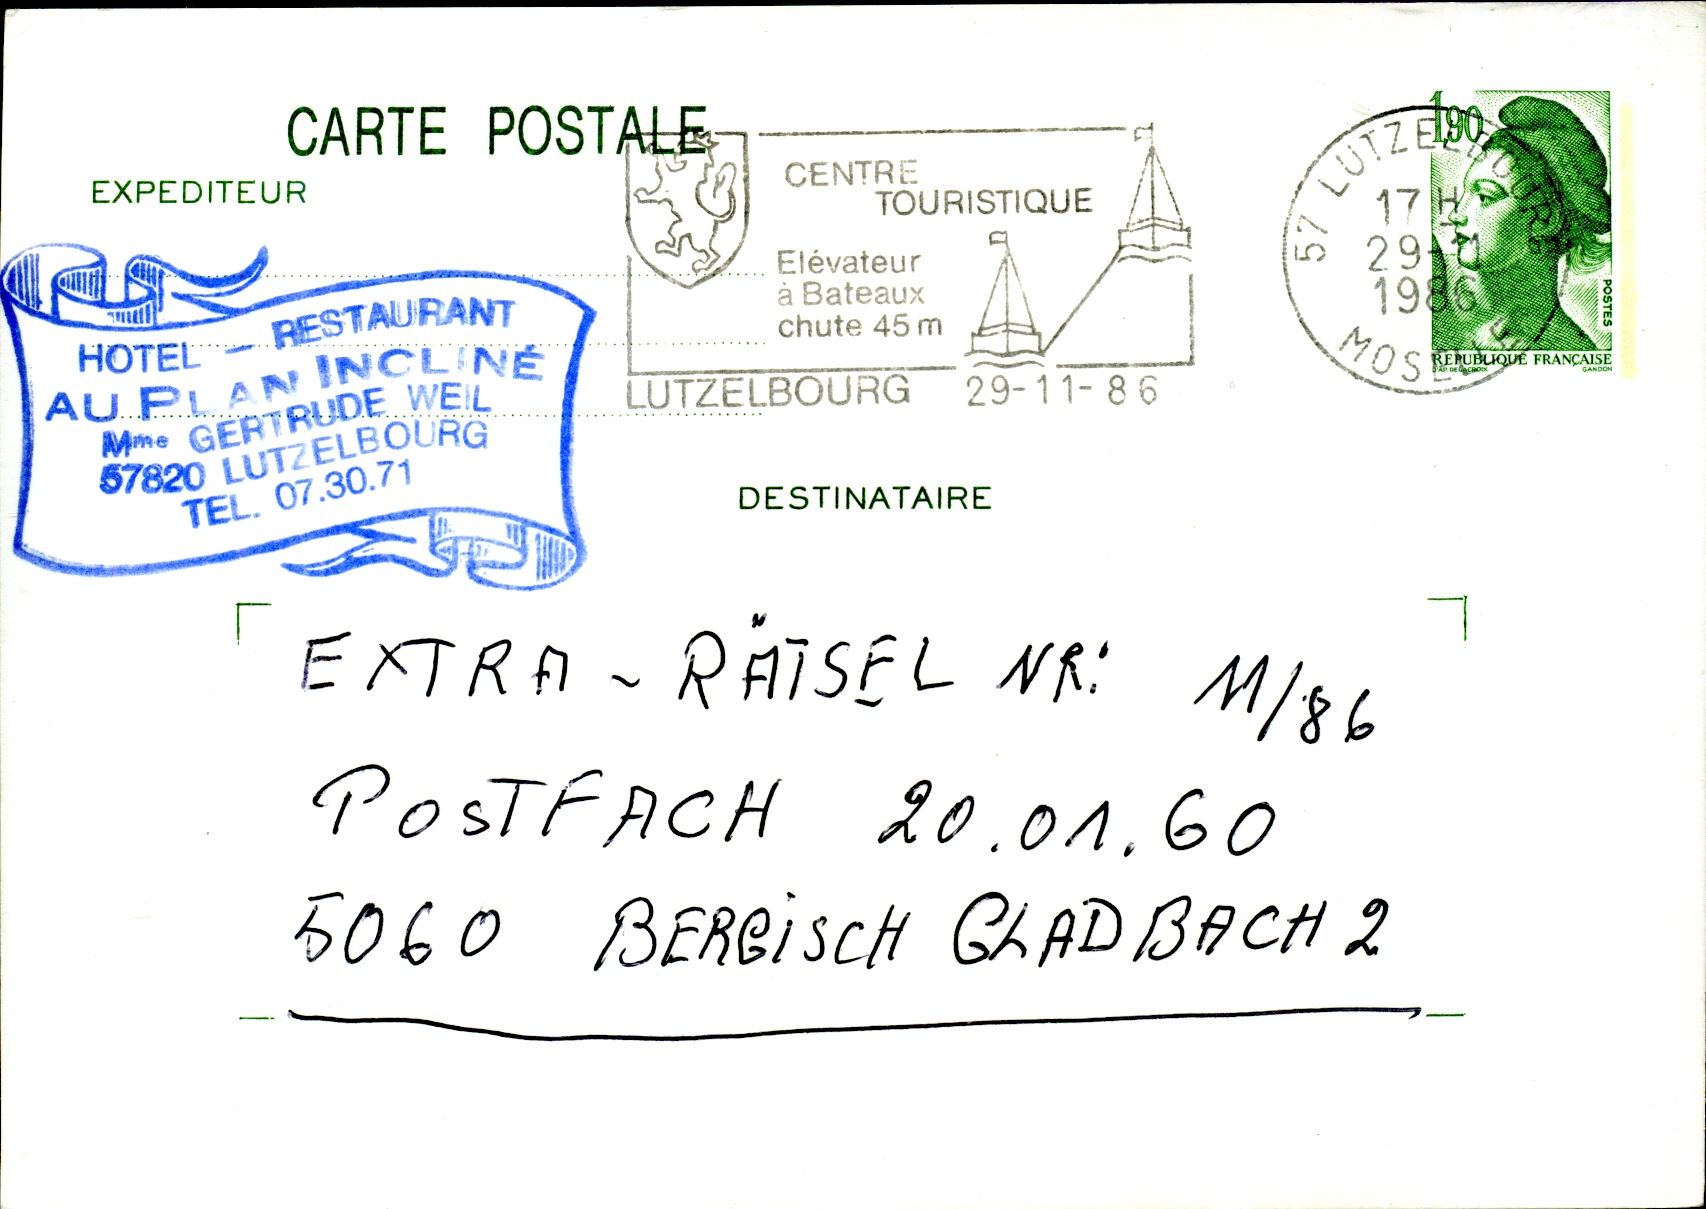 CARTE POSTALE
EXPEDITEUR
HOTEL — RESTAURANT
AU PLAN INCLINÉ
Mme GERTRUDE WEIL
57820 LUTZELBOURG
TEL. 07.30.71
CENTRE
TOURISTIQUE
Elévateur
à Bateaux
chute 45 m
LUTZELBOURG 29-11-86
57 LUTZELBOURG
17 H
29-11
1986
MOSELLE
1,90
POSTES
REPUBLIQUE FRANÇAISE
D'AP. DELACROIX GANDON
DESTINATAIRE
EXTRA - RÄTSEL NR: 11/86
POSTFACH 20.01.60
5060 BERGISCH GLADBACH 2